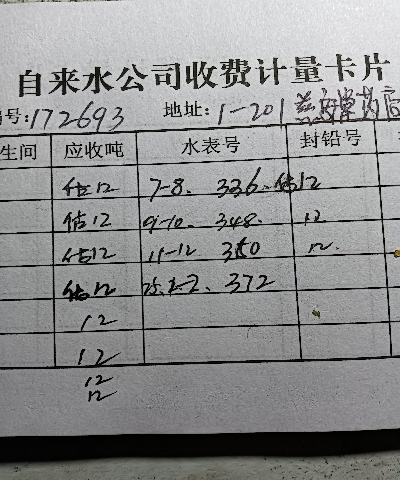 自来水公司收费计量卡片
号:172693 地址:1-201
生间 应收吨 水表号 封铅号
估12 7-8. 336. 估12
估12 9-10. 348. 12
估12 11-12 360 12.
估12 25. 2. 372
12
12
12
12